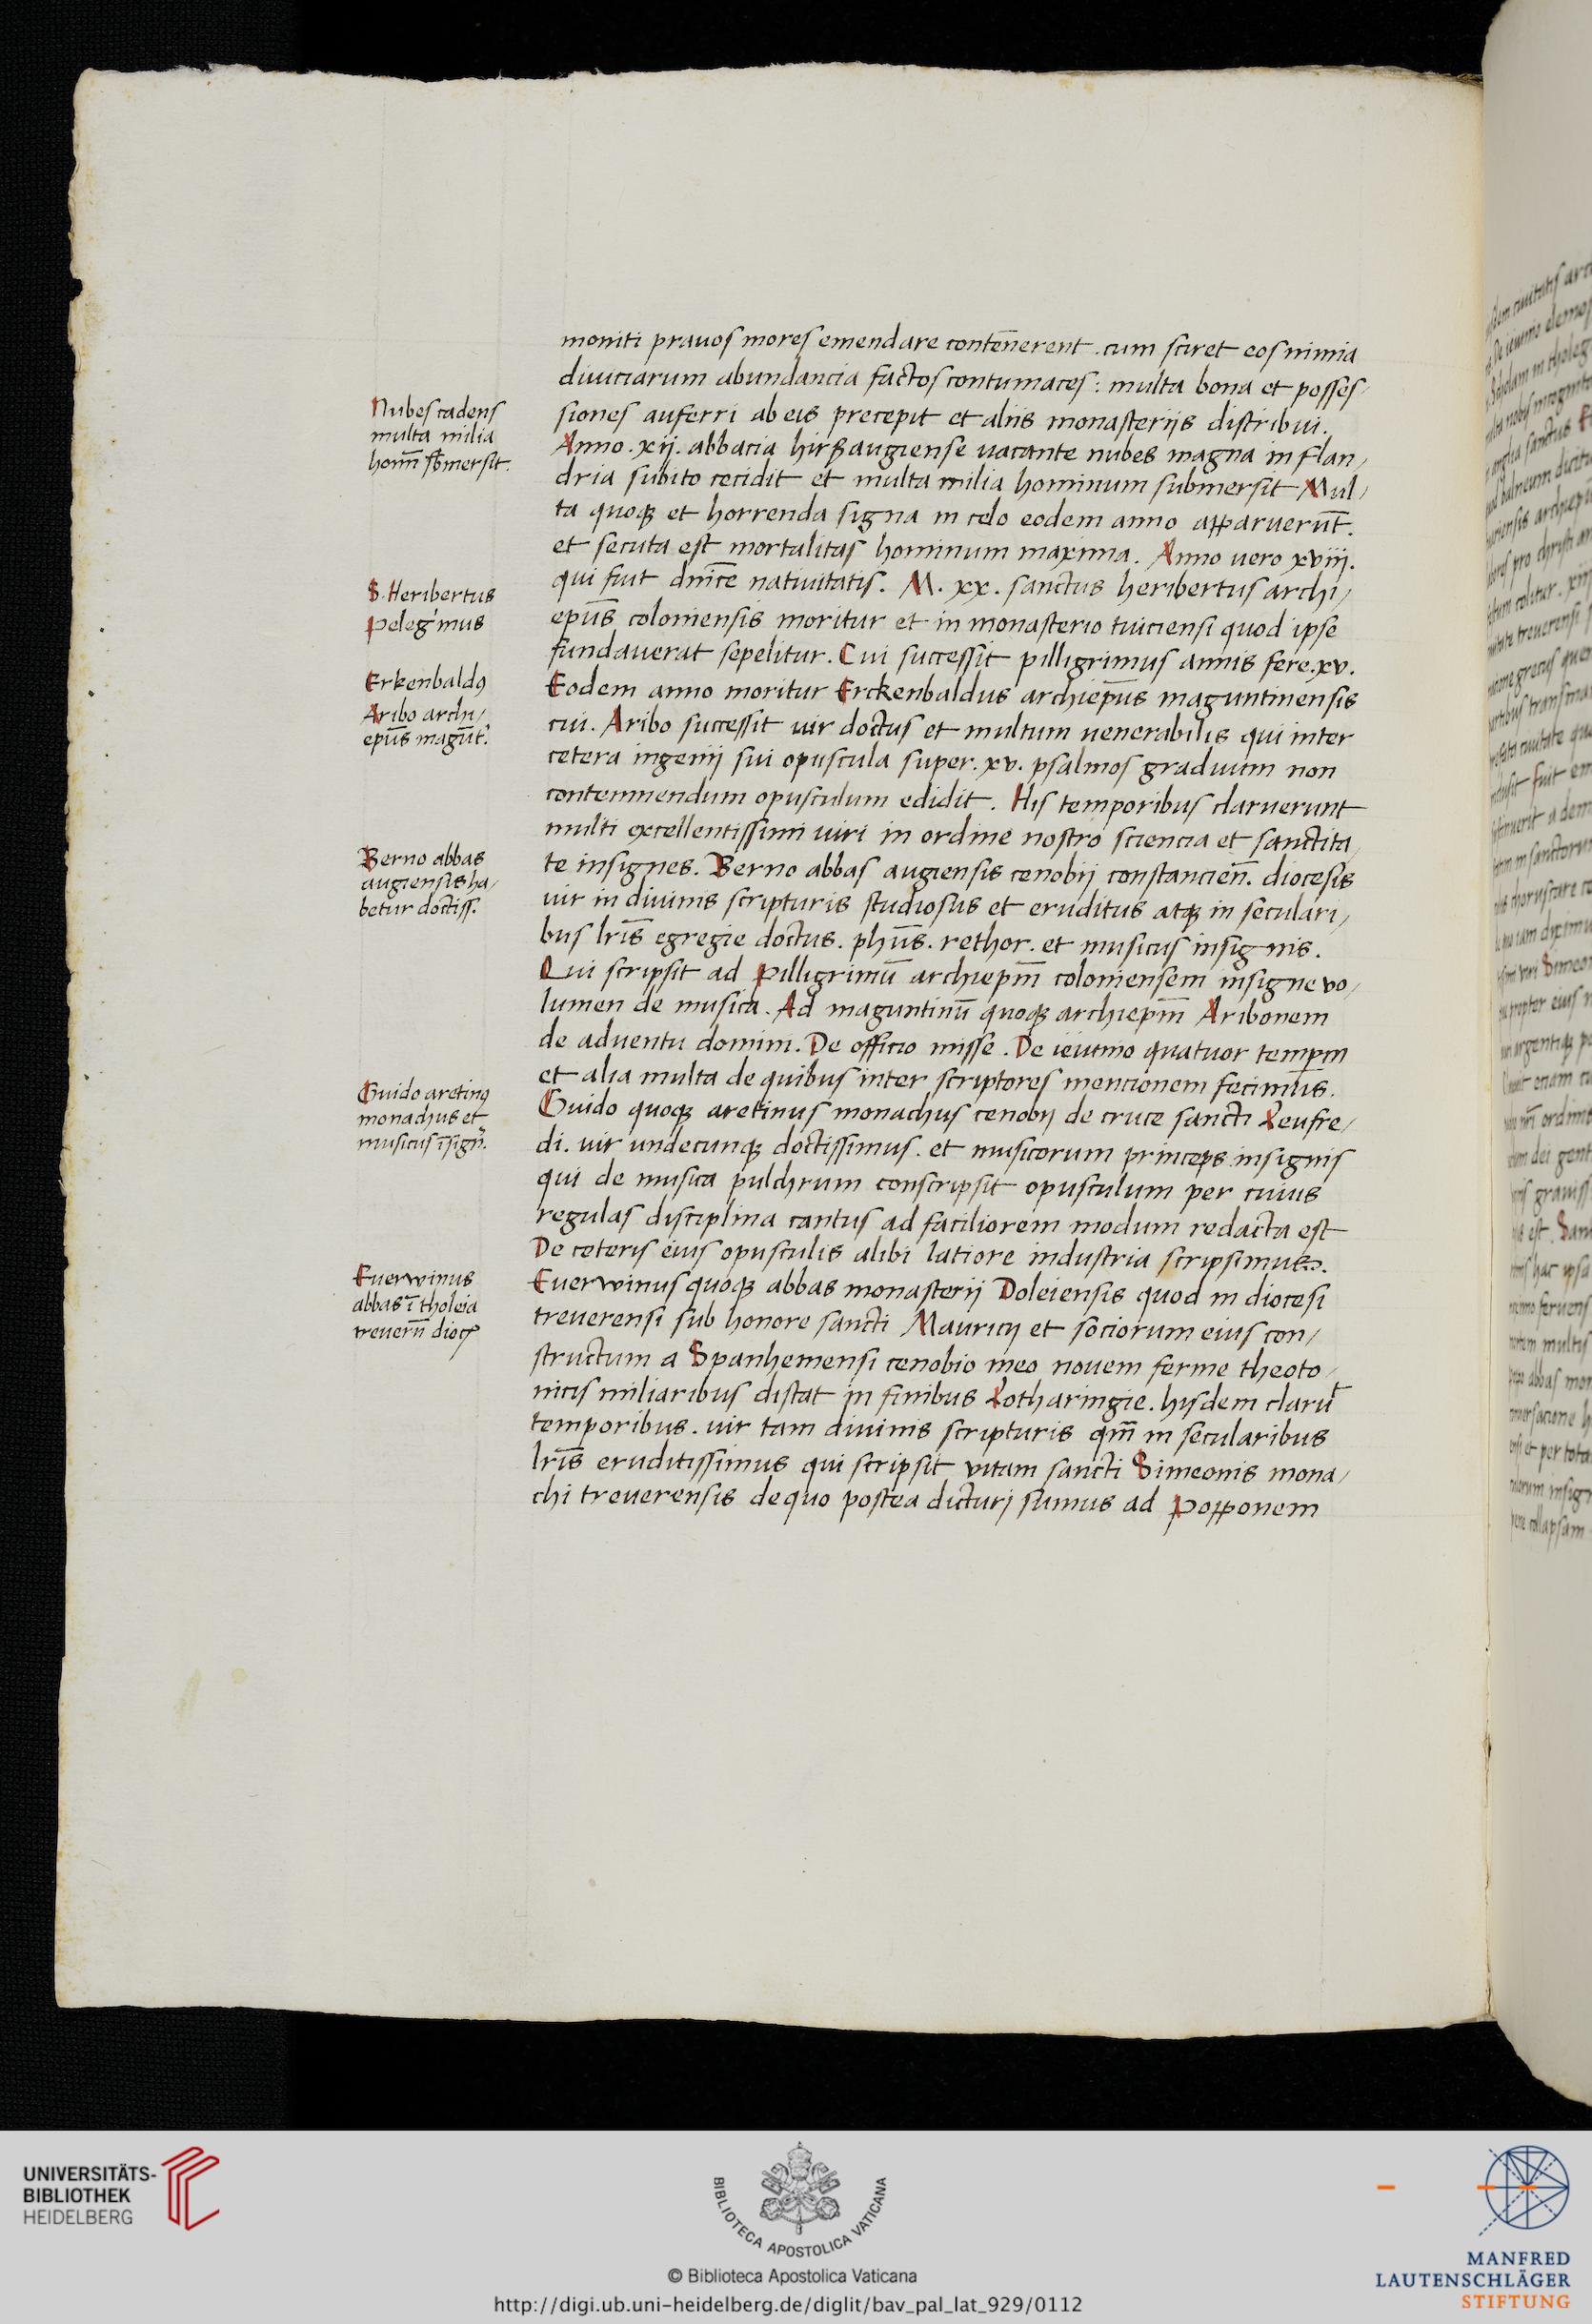 moniti prauos mores emendare contēnerent. cum sciret eos nimia
diuiciarum abundancia factos contumaces: multa bona et posses/
siones auferri ab eis precepit et aliis monasteriis distribui.
Anno. xij. abbacia hirsaugiense uacante nubes magna in flan/
dria subito cecidit et multa milia hominum submersit Mul/
ta quoqꝫ et horrenda signa in celo eodem anno apparuerūt.
et secuta est mortalitas hominum maxima. Anno uero xviij.
qui fuit dn̄ice natiuitatis. M. xx. sanctus heribertus archi/
ep̄us coloniensis moritur et in monasterio tuiciensi quod ipse
fundauerat sepelitur. Cui successit pilligrimus annis fere. xv.
Eodem anno moritur Erckenbaldus archiep̄us maguntinensis
cui. Aribo successit uir doctus et multum uenerabilis qui inter
cetera ingenij sui opuscula super. xv. psalmos graduum non
contemnendum opusculum edidit. His temporibus claruerunt
multi excellentissimi uiri in ordine nostro sciencia et sanctita/
te insignes. Berno abbas augiensis cenobij constancien̄. diocesis
uir in diuinis scripturis studiosus et eruditus atqꝫ in seculari/
bus lr̄is egregie doctus. ph̄us. rethor. et musicus insignis.
Qui scripsit ad pilligrimū archiep̄m coloniensem insigne vo/
lumen de musica. Ad maguntinū quoqꝫ archiep̄m Aribonem
de aduentu domini. De officio misse. De ieiunio quatuor temp̄m
et alia multa de quibus inter scriptores mencionem fecimus.
Guido quoqꝫ aretinus monachus cenobij de cruce sancti Leufre/
di. uir undecunqꝫ doctissimus. et musicorum princeps insignis
qui de musica pulchrum conscripsit opusculum per cuius
regulas disciplina cantus ad faciliorem modum redacta est
De ceteris eius opusculis alibi latiore industria scripsimus.
Euerwinus quoqꝫ abbas monasterij Doleiensis quod in diocesi
treuerensi sub honore sancti Mauricij et sociorum eius con/
structum a Spanhemensi cenobio meo nouem ferme theoto/
nicis miliaribus distat in finibus Lotharingie. hisdem claruī̄t
temporibus. uir tam diuinis scripturis qm̄ in secularibus
lr̄is eruditissimus qui scripsit vitam sancti Simeonis mona/
chi treuerensis de quo postea dicturi sumus ad Popponem
Nubes cadens
multa milia
homī̄ sb̄mersit.
S. Heribertus
Peleg'mus
Erkenbaldꝰ
Aribo archi/
ep̄us magūt'.
Berno abbas
augiensis ha/
betur doctiss.
Guido aretinꝰ
monachus et
musicus īsign̄.
Euerwinus
abbas ī tholeia
treuern̄ dioc̄
UNIVERSITÄTS-
BIBLIOTHEK
HEIDELBERG
BIBLIOTECA APOSTOLICA VATICANA
© Biblioteca Apostolica Vaticana
http://digi.ub.uni-heidelberg.de/diglit/bav_pal_lat_929/0112
MANFRED
LAUTENSCHLÄGER
STIFTUNG